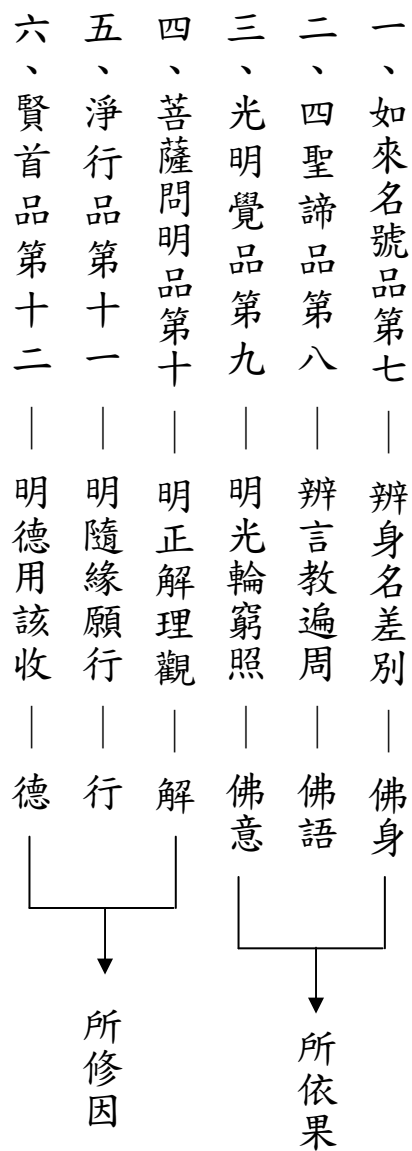 一、如來名號品第七｜辨身名差別｜佛身
二、四聖諦品第八｜辨言教遍周｜佛語
三、光明覺品第九｜明光輪窮照｜佛意
四、菩薩問明品第十｜明正解理觀｜解
五、淨行品第十一｜明隨緣願行｜行
六、賢首品第十二｜明德用該收｜德
所依果
所修因